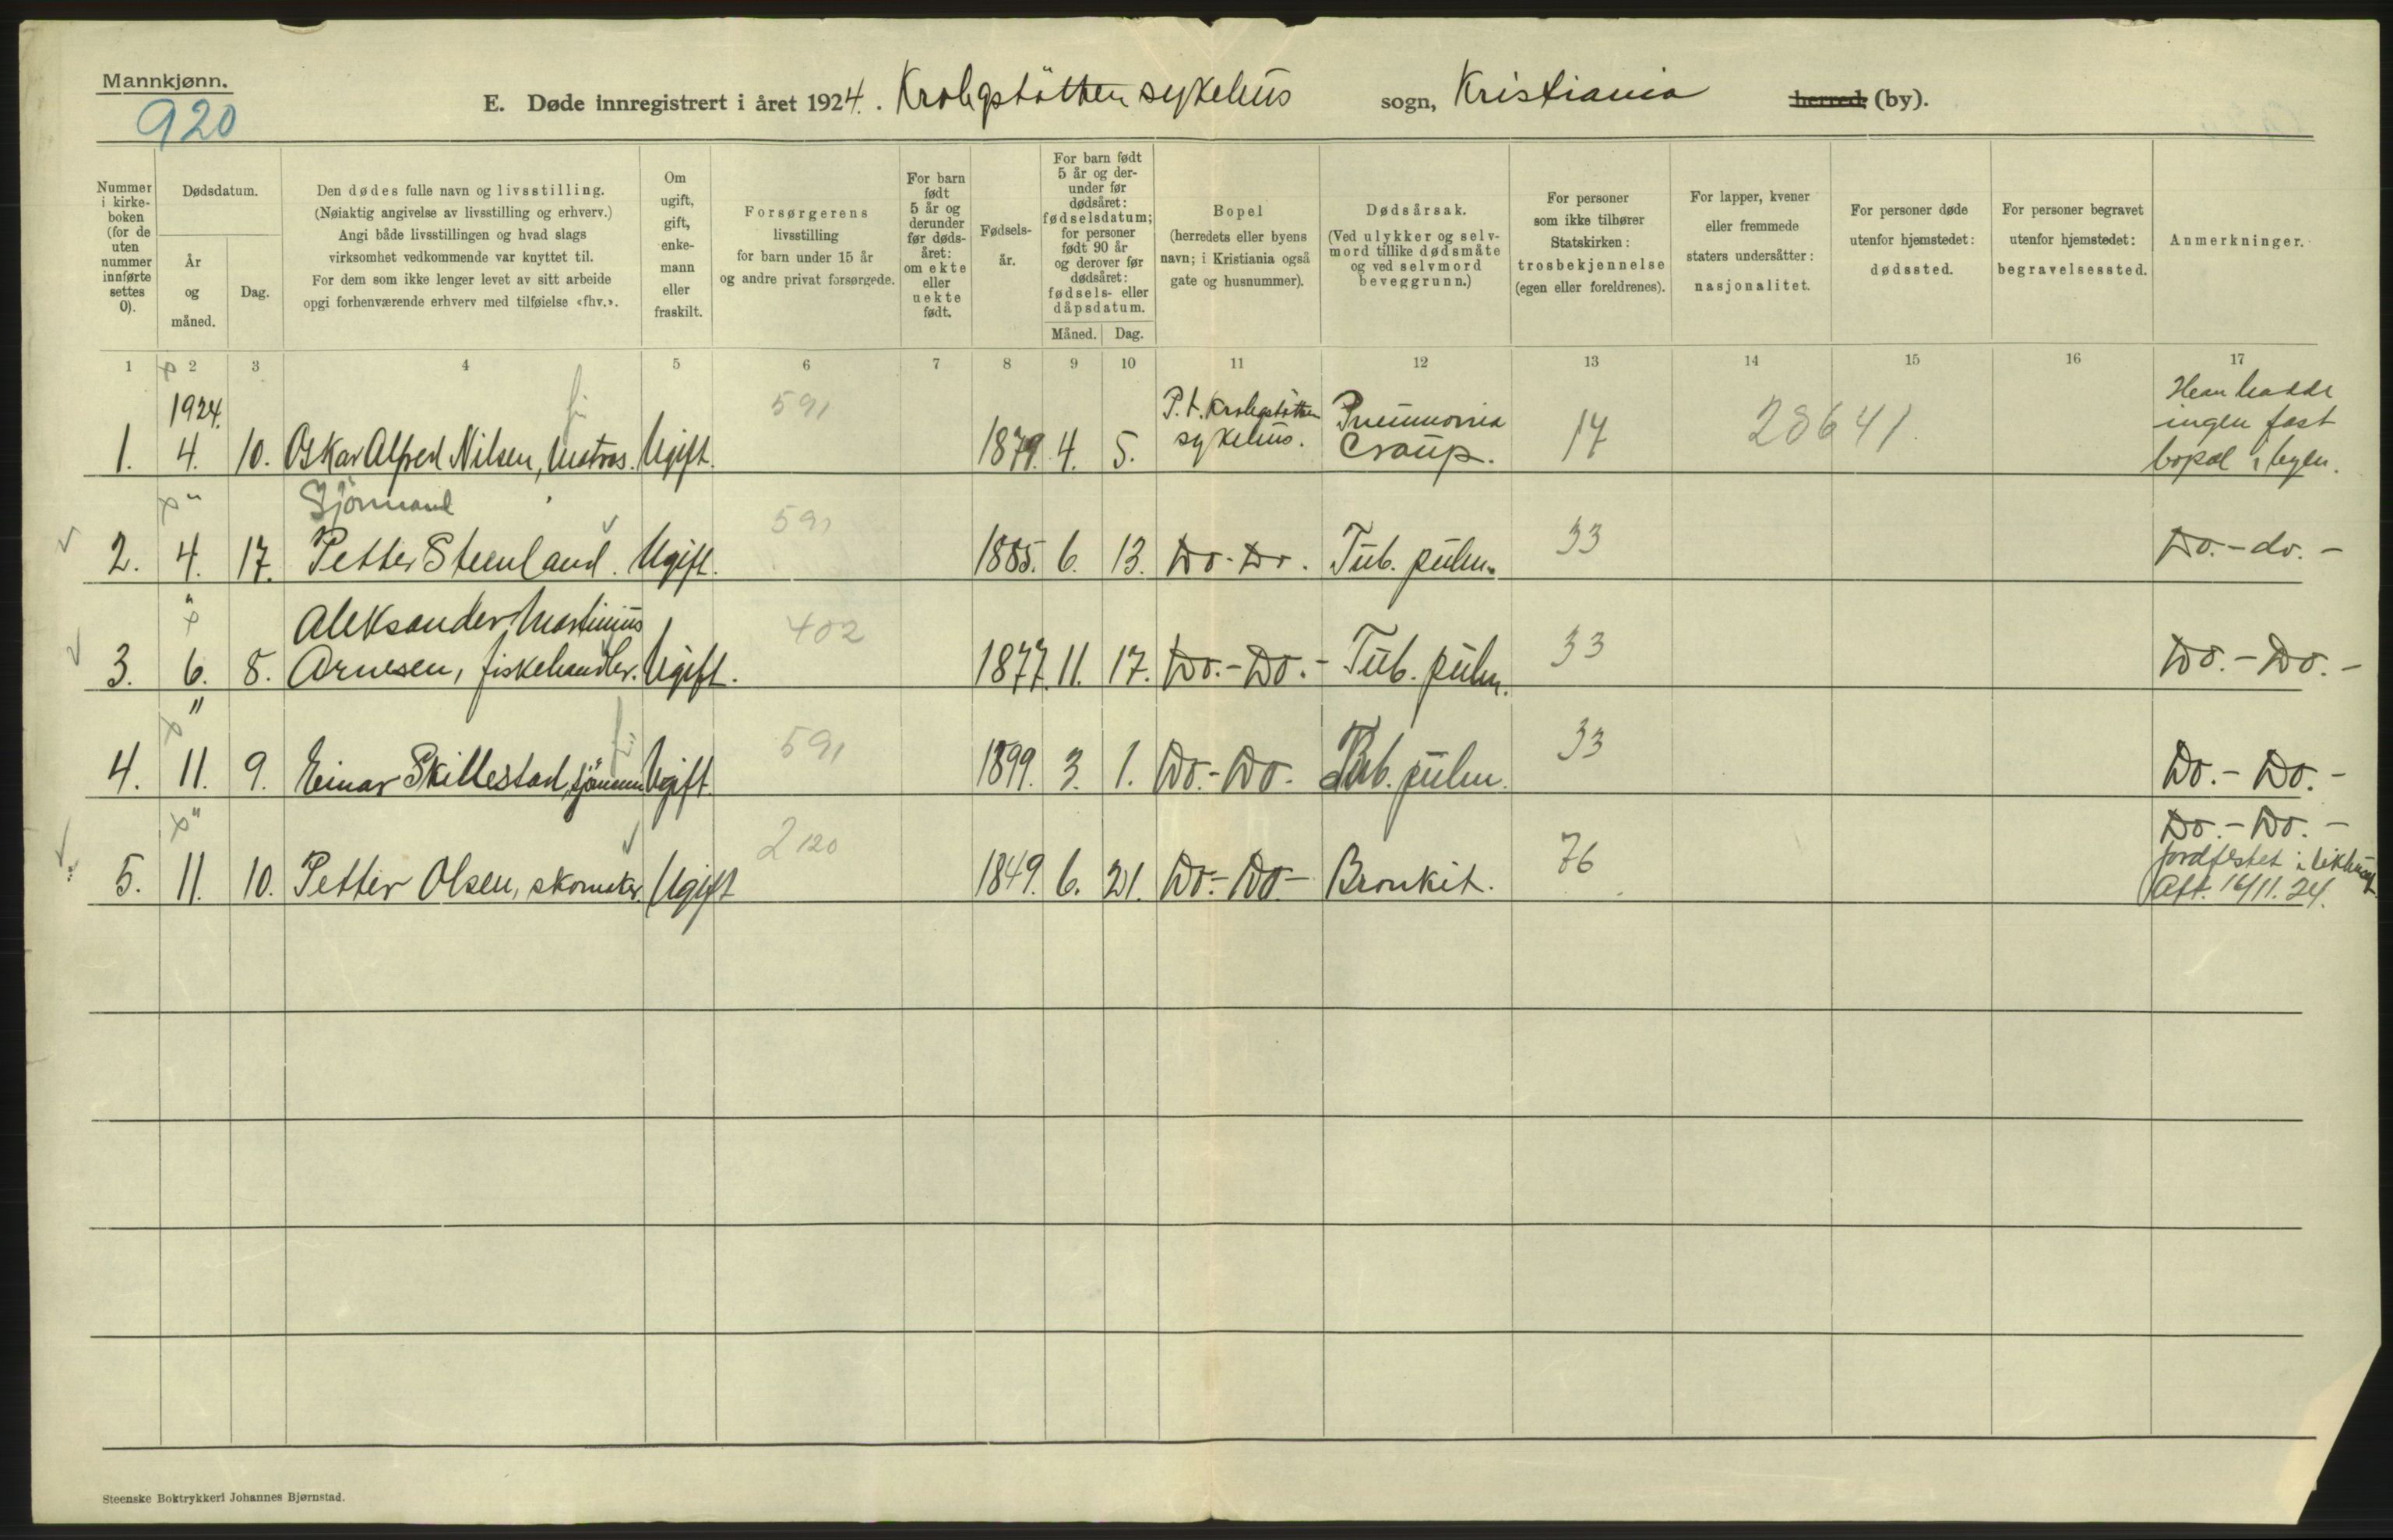 Mannkjønn.
920
E. Døde innregistrert i året 1924. Krohgstötten sykehus sogn, Kristiania herred (by).
Nummer i kirke-boken (for de uten nummer innførte settes 0).
Dødsdatum.
År og måned.
Dag.
Den dødes fulle navn og livsstilling.
(Nøiaktig angivelse av livsstilling og erhverv.)
Angi både livsstillingen og hvad slags
virksomhet vedkommende var knyttet til.
For dem som ikke lenger levet av sitt arbeide
opgi forhenværende erhverv med tilføielse «fhv.».
Om ugift, gift, enke-mann eller fraskilt.
Forsørgerens
livsstilling
for barn under 15 år
og andre privat forsørgede.
For barn født 5 år og derunder før døds-året: om ekte eller uekte født.
Fødsels-år.
For barn født 5 år og der-under før dødsåret: fødselsdatum; for personer født 90 år og derover før dødsåret: fødsels- eller dåpsdatum.
Måned. Dag.
Bopel
(herredets eller byens
navn; i Kristiania også
gate og husnummer).
Dødsårsak.
(Ved ulykker og selv-
mord tillike dødsmåte
og ved selvmord
beveggrunn.)
For personer
som ikke tilhører
Statskirken:
trosbekjennelse
(egen eller foreldrenes).
For lapper, kvener
eller fremmede
staters undersåtter:
nasjonalitet.
For personer døde
utenfor hjemstedet:
dødssted.
For personer begravet
utenfor hjemstedet:
begravelsessted.
Anmerkninger.
1 2 3 4 5 6 7 8 9 10 11 12 13 14 15 16 17
1924.
1. 4. 10. Oskar Alfred Nilsen, Matros. Ugift. 591 1879. 4. 5. P.t. Krohgstötten sykehus. Pneumonia Croup. 17 28641 Han hadde ingen fast bopæl i byen.
Sjömand
2. " 4. 17. Petter Steenland. Ugift. 591 1885. 6. 13. Do.-Do. Tub. pulm. 33 Do.-do.-
Aleksander Martinius
3. " 6. 8. Arnesen, fiskehandler. Ugift. 402 1877. 11. 17. Do.-Do.- Tub. pulm. 33 Do.-Do.-
4. " 11. 9. Einar Skillestad, sjömann Ugift. 591 1899. 3. 1. Do.-Do. Tub. pulm. 33 Do.-Do.-
5. " 11. 10. Petter Olsen, skomaker. Ugift 2120 1849. 6. 21. Do.-Do- Bronkit. 76 Do.-Do.-
jordfestet i
Aft. 14/11. 24.
Steenske Boktrykkeri Johannes Bjørnstad.